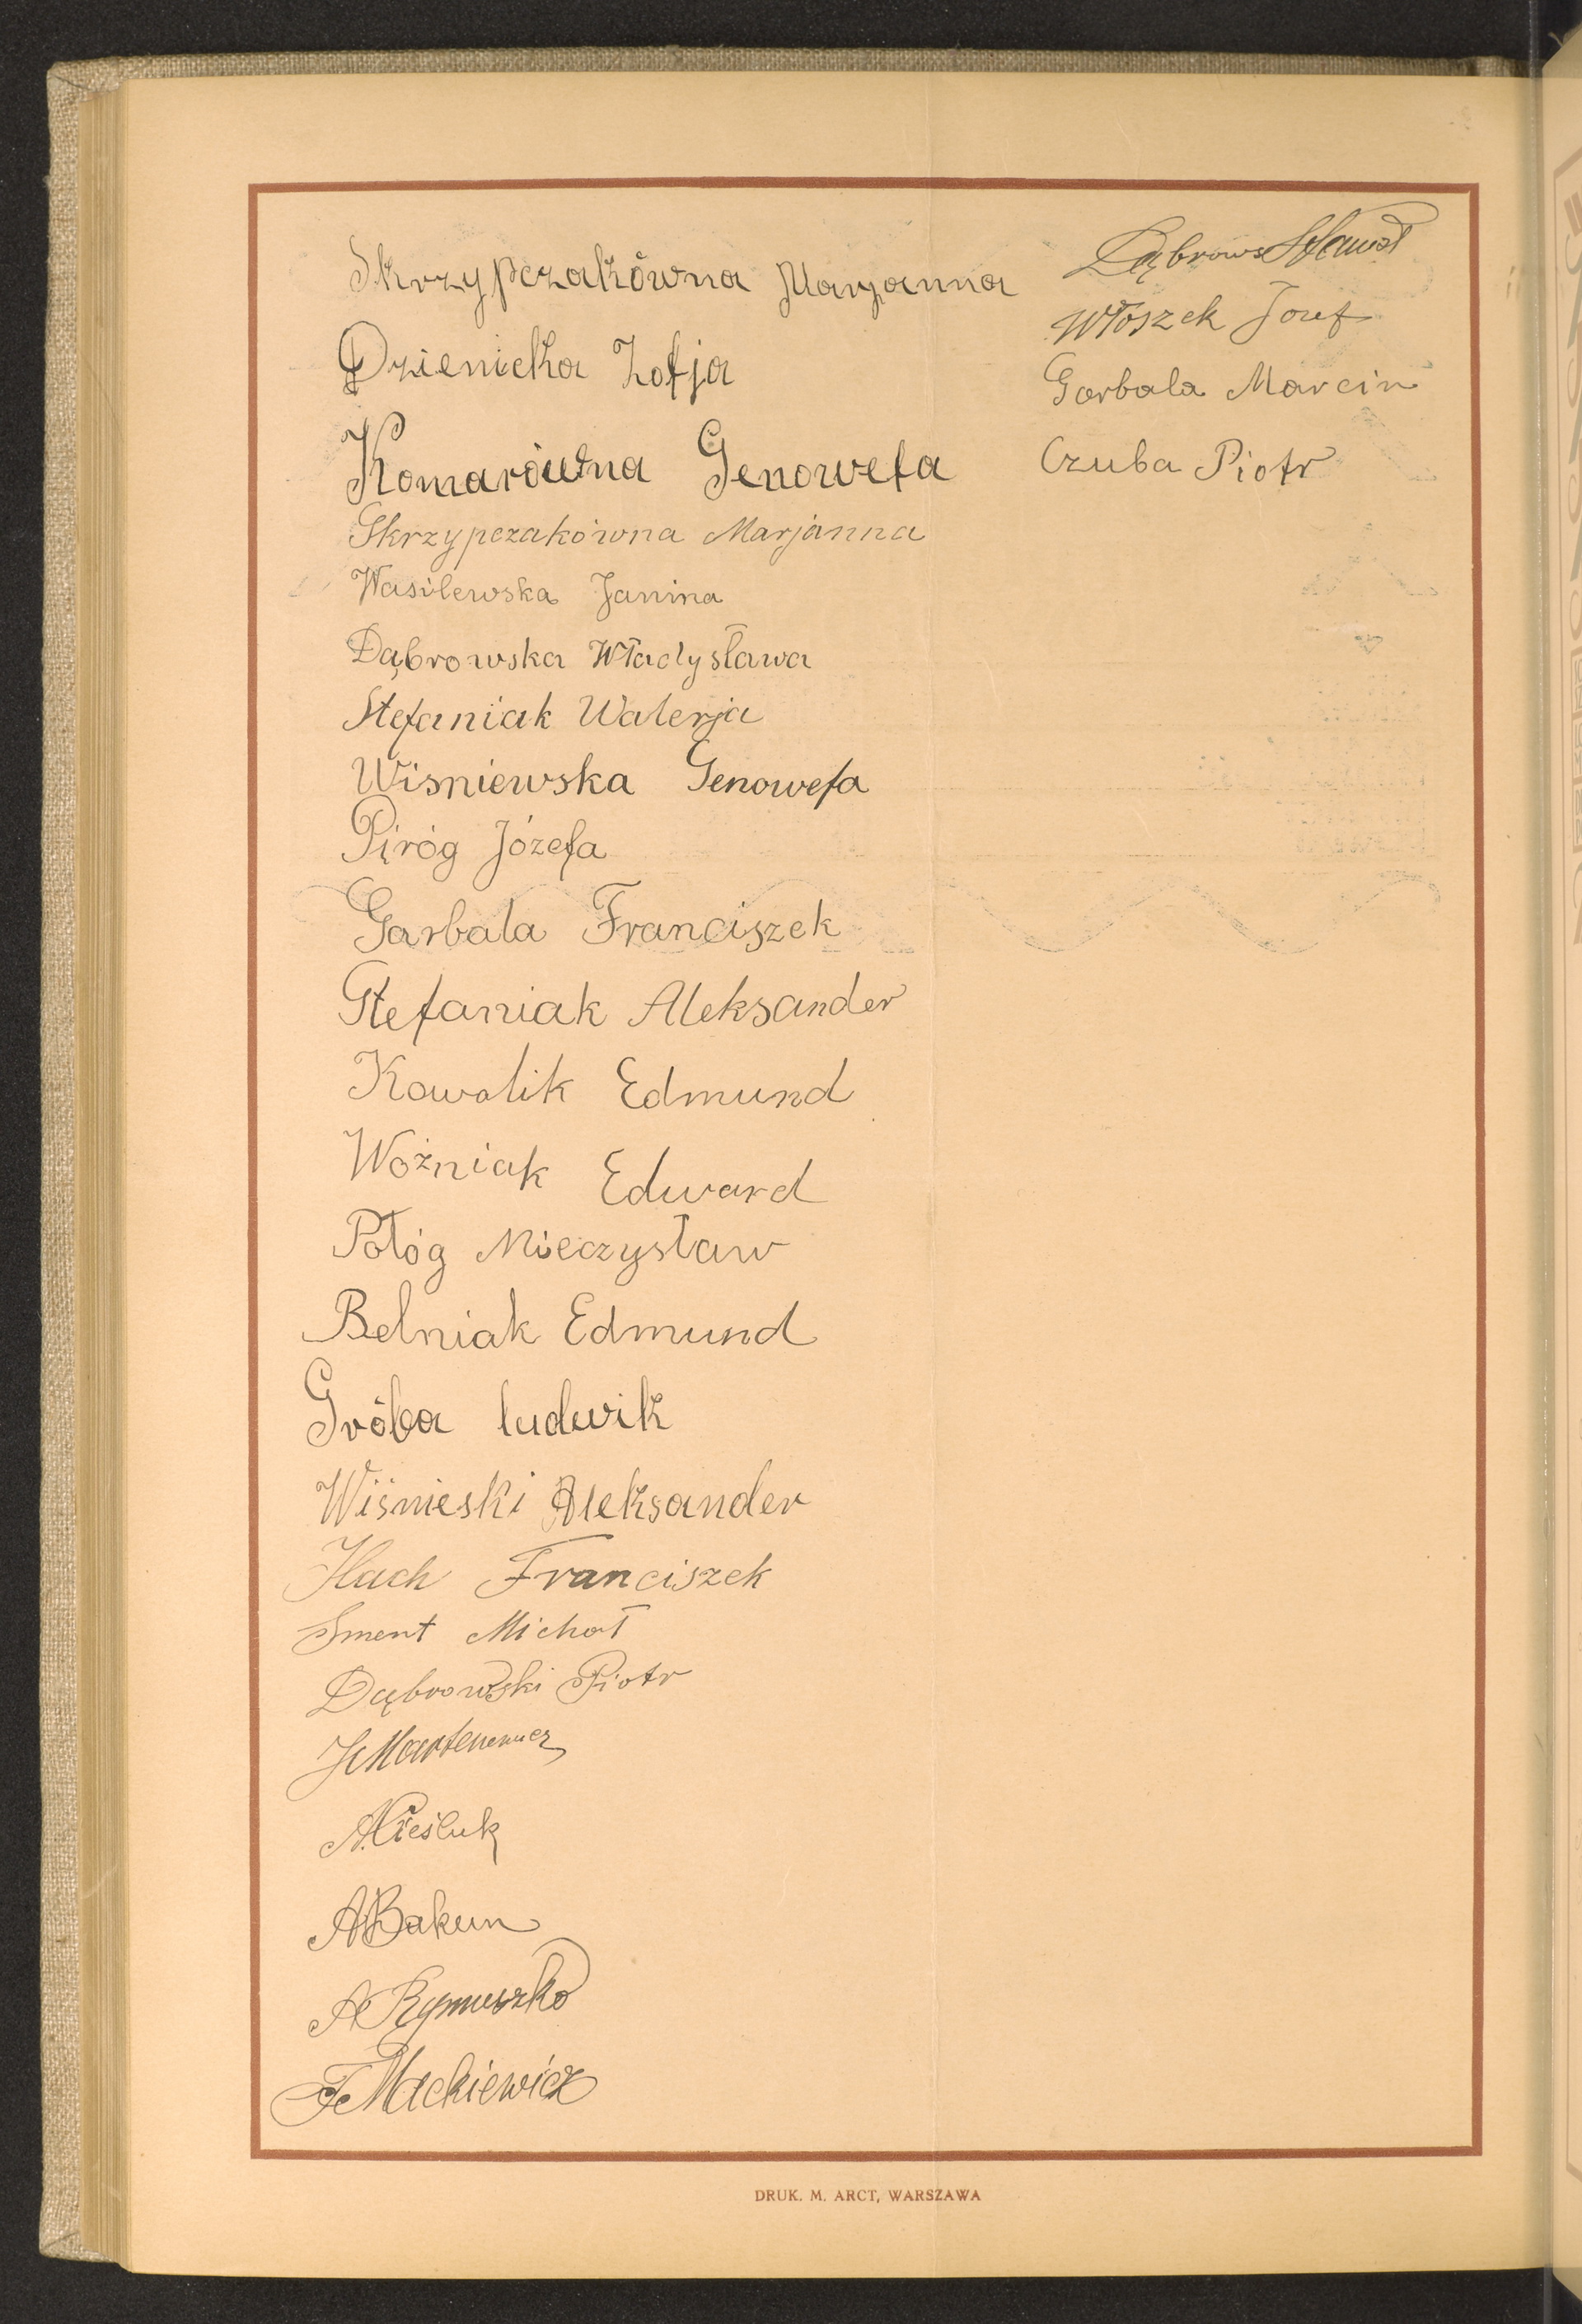 Skrzypczakówna Marjanna
Dzienicka Zofja
Komarówna Genowefa
Skrzypczakówna Marjanna
Wasilewska Janina
Dąbrowska Władysława
Stefaniak Walerja
Wisniewska Genowefa
Piróg Józefa
Garbala Franciszek
Stefaniak Aleksander
Kowalik Edmund
Woźniak Edward
Połóg Mieczysław
Belniak Edmund
Gróba ludwik
Wiśnieski Aleksander
Ilach Franciszek
Sment Michał
Dąbrowski Piotr
A. Cieśluk
ABakun
Mackiewicz
Włoszek Józef
Garbala Marcin
Czuba Piotr
DRUK. M. ARCT, WARSZAWA